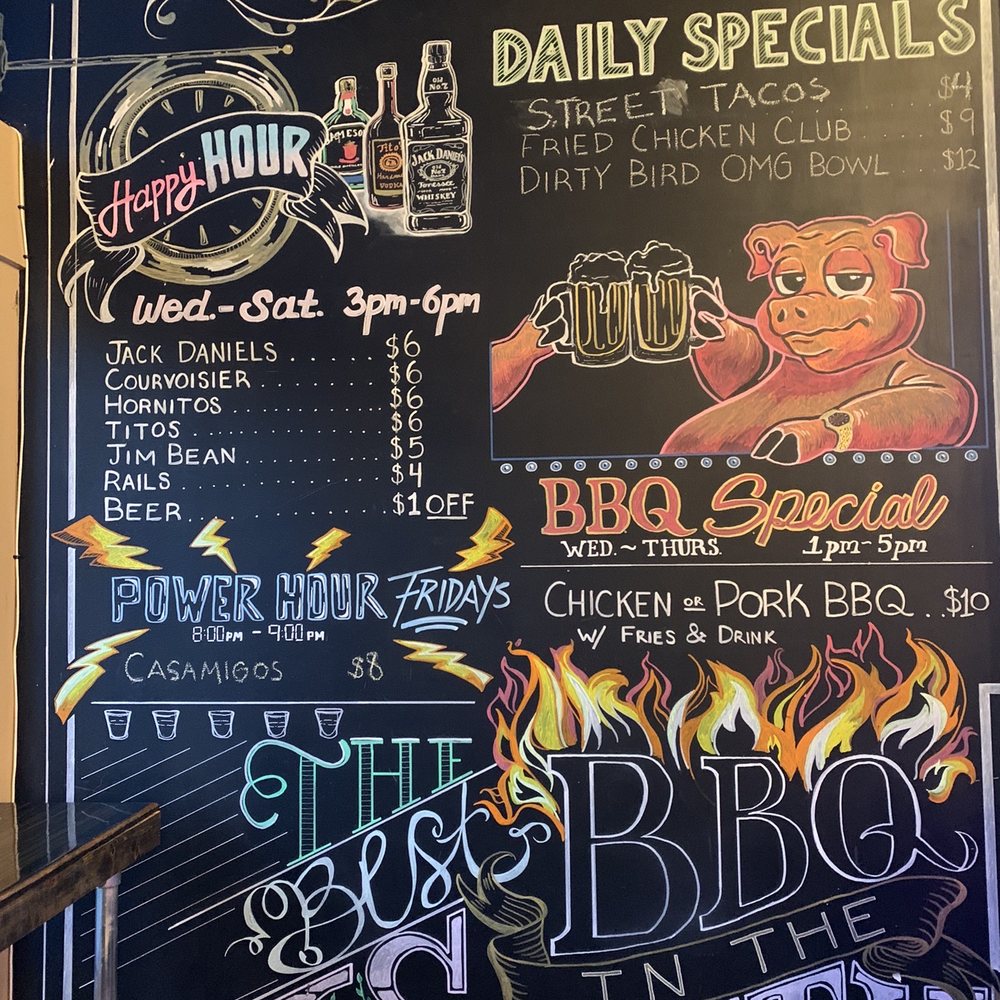 Happy HOUR
JAMESON
Tito's
Handmade
VODKA
OLD
No.7
JACK DANIEL'S
Old
No.7
Tennessee
WHISKEY
Wed.-Sat. 3pm-6pm
JACK DANIELS ...... $6
COURVOISIER ........ $6
HORNITOS .......... $6
TITOS ............. $6
JIM BEAN .......... $5
RAILS ............. $4
BEER .............. $1 OFF
POWER HOUR FRIDAYS
8:00PM - 9:00PM
CASAMIGOS $8
DAILY SPECIALS
STREET TACOS ...... $4
FRIED CHICKEN CLUB .... $9
DIRTY BIRD OMG BOWL .. $12
BBQ Special
WED. ~ THURS. 1pm-5pm
CHICKEN OR PORK BBQ .. $10
W/ FRIES & DRINK
THE
Best BBQ
IN THE